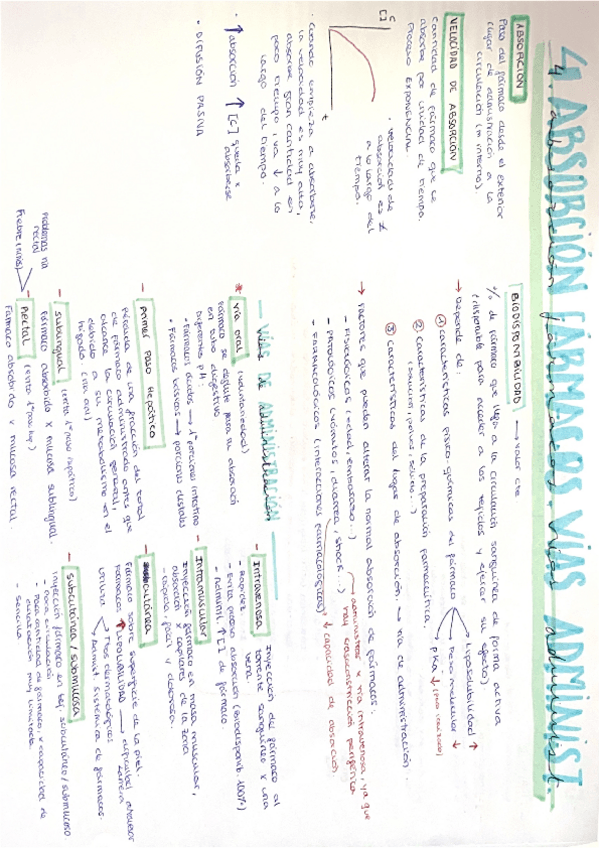 4. ABSORCIÓN FÁRMACOS. VÍAS ADMINIST.
ABSORCIÓN
Paso del fármaco desde el exterior
(lugar de administración) a la
circulación (m. interno).
VELOCIDAD DE ABSORCIÓN
Cantidad de fármaco que se
absorbe por unidad de tiempo.
Proceso exponencial
C
[ ]
t
• Velocidad de
absorción es ≠
a lo largo del
tiempo.
• Cuando empieza a absorberse,
la velocidad es muy alta,
absorbe gran cantidad en
poco tiempo, va ↓ a lo
largo del tiempo.
• ↑ absorción ↑ [C] queda x
absorberse
• DIFUSIÓN PASIVA
BIODISPONIBILIDAD → valor cte
% de fármaco que llega a la circulación sanguínea de forma activa
(disponible para acceder a los tejidos y ejercer su efecto)
→ Depende de:
① características físico-químicas del fármaco
Liposolubilidad ↑
Peso molecular ↓
pKa ↓
② Características de la preparación farmacéutica
(solución, polvos, sólido...)
③ Características del lugar de absorción. → vía de administración.
→ Factores que pueden alterar la normal absorción de fármacos:
- Fisiológicos (edad, embarazo...)
- Patológicos (vómitos, diarrea, shock...)
administrar x vía intravenosa, ya que
hay vasoconstricción periférica
↓ capacidad de absorción
- Farmacológicos (interacciones farmacológicas)
VÍAS DE ADMINISTRACIÓN
* Vía oral (voluntariedad)
Fármaco se deglute para su absorción
en tubo digestivo
Diferentes pH:
• Fármacos ácidos → 1ª porciones intestino
• Fármacos básicos → porciones distales
- Primer Paso Hepático
Pérdida de una fracción del total
de fármaco administrado antes que
alcance la circulación general,
debido a su metabolismo en el
hígado (vía oral)
- Sublingual (evita 1er paso hepático)
Fármaco absorbido x mucosa sublingual.
- Rectal (evita 1er paso hep)
Fármaco absorbido x mucosa rectal.
Problemas vía
rectal
Fiebre (niños)
- Intravenosa Inyección de fármaco al
torrente sanguíneo x una
vena.
- Rapidez
- Evita proceso absorción (biodisponib. 100%)
- ↑ [C] de fármaco.
- Intramuscular
Inyección fármaco en masa muscular,
absorción x capilares de la zona
- rápida, fácil y dolorosa.
- cutánea
Fármaco sobre superficie de la piel.
Fármacos: ↑ LIPOSOLUBILIDAD → dificultad atravesar
barrera
Utiliza Ttos dermatológicos.
Administ. sistémica de fármacos.
- Subcutánea / submucosa
Inyección fármaco en tej. subcutáneo/submucoso
- Poca circulación
- Poca cantidad de fármaco y capacidad de
muy limitada
- Sencilla